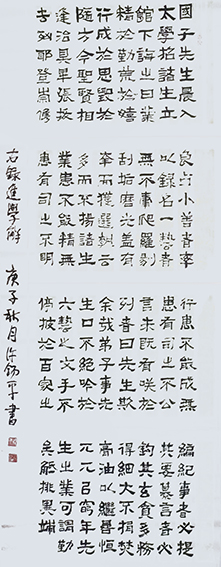 國子先生晨入
太學招諸生立
館下誨之曰業
精於勤荒於嬉
行成於思毀於
隨方今聖賢相
逢治具畢張拔
去凶邪登崇俊
良占小善者率
以錄名一藝者
無不庸爬羅剔
刮垢磨光蓋有
幸而獲選孰云
多而不揚諸生
業患不能精無
患有司之不明
行患不能成無
患有司之不公
言未既有咲於
列者曰先生欺
余哉弟子事先
生口不絕吟於
六藝之文手不
停披於百家之
編紀事者必提
其要纂言者必
鉤其玄貪多務
得細大不捐焚
膏油以繼晷恆
兀兀以窮年先
生之業可謂勤
矣觝排異端
右錄進學解 庚子秋月許錫平書